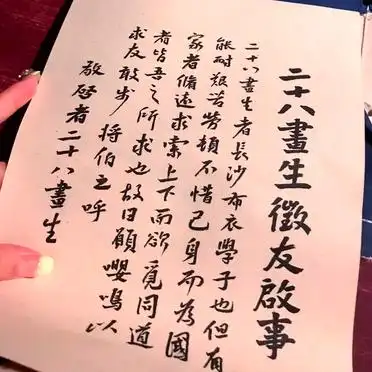 二十八畫生徵友啟事
二十八畫生者長沙布衣學子也但有
能耐艱苦勞頓不惜己身而為國
家者修遠求索上下而欲覓同道
者皆吾之所求也故曰願嚶鳴以
求友敢步將伯之呼
敬啟者二十八畫生